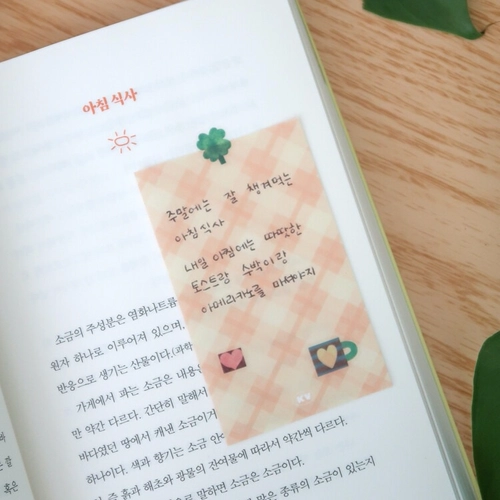 아침 식사
주말에는 잘 챙겨먹는
아침식사
내일 아침에는 따뜻한
토스트랑 수박이랑
아메리카노를 마셔야지
소금의 주성분은 염화나트륨
원자 하나로 이루어져 있으며,
반응으로 생기는 산물이다.(과학
가게에서 파는 소금은 내용
만 약간 다르다. 간단히 말해서
바다였던 땅에서 캐낸 소금이거
하나이다. 색과 향기는 소금 안
흙과 해초와 광물의 잔여물에 따라서 약간씩 다르다.
으로 말하면 소금은 소금이다.
많은 종류의 소금이 있는지
혹은